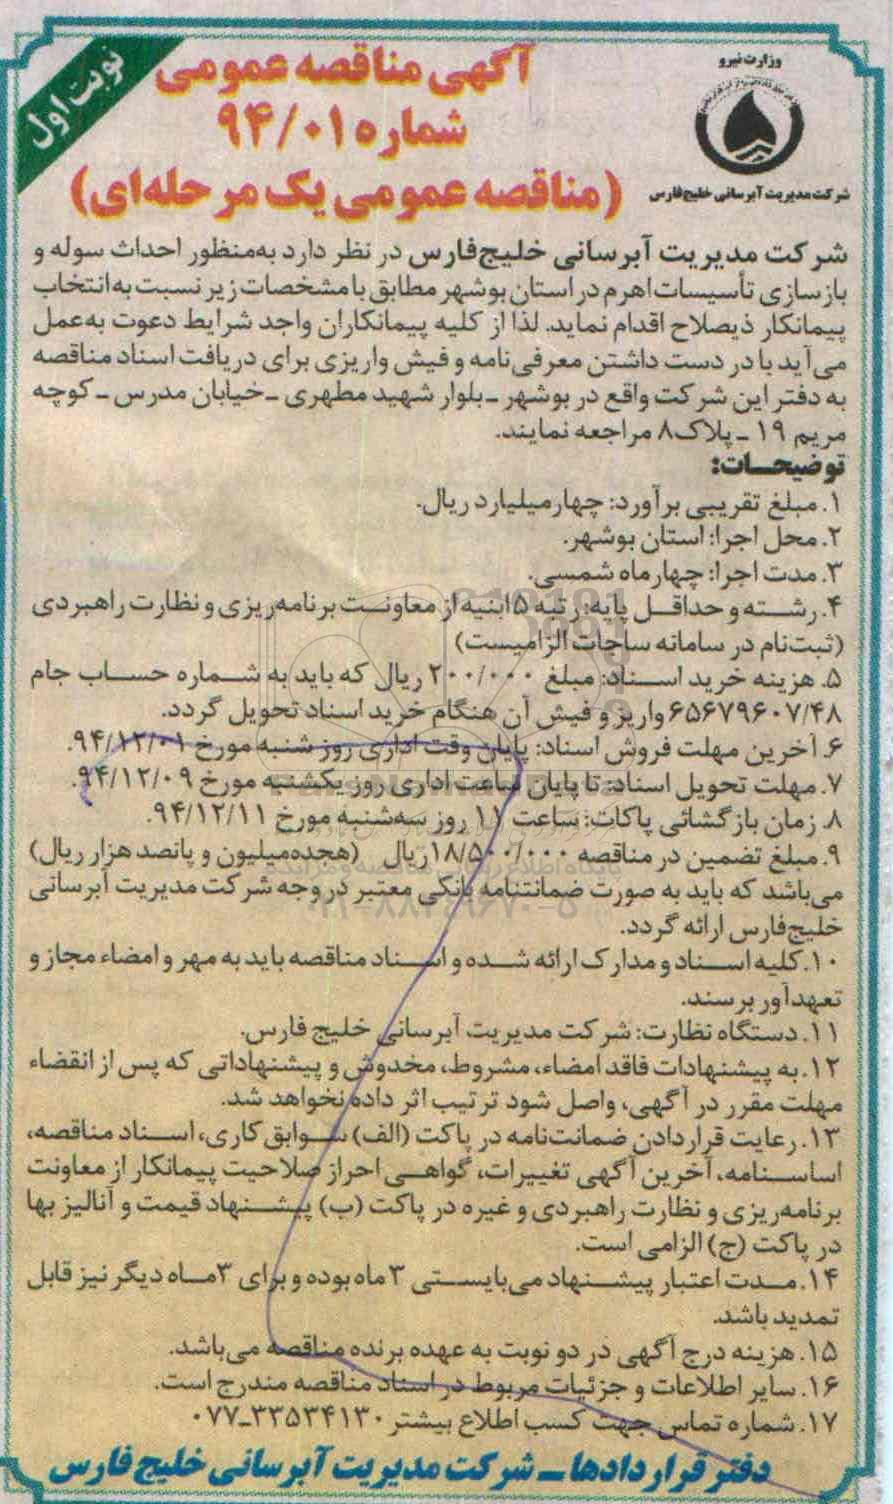 نوبت اول
آگهی مناقصه عمومی
شماره ۹۴/۰۱
(مناقصه عمومی یک مرحله‌ای)
وزارت نیرو
شرکت مدیریت آبرسانی خلیج فارس
شرکت مدیریت آبرسانی خلیج‌فارس در نظر دارد به‌منظور احداث سوله و
بازسازی تأسیسات اهرم در استان بوشهر مطابق با مشخصات زیر نسبت به انتخاب
پیمانکار ذیصلاح اقدام نماید. لذا از کلیه پیمانکاران واجد شرایط دعوت به‌عمل
می‌آید با در دست داشتن معرفی‌نامه و فیش واریزی برای دریافت اسناد مناقصه
به دفتر این شرکت واقع در بوشهر ـ بلوار شهید مطهری ـ خیابان مدرس ـ کوچه
مریم ۱۹ ـ پلاک ۸ مراجعه نمایند.
توضیحات:
۱. مبلغ تقریبی برآورد: چهارمیلیارد ریال.
۲. محل اجرا: استان بوشهر.
۳. مدت اجرا: چهارماه شمسی.
۴. رشته و حداقل پایه: رتبه ۵ ابنیه از معاونت برنامه‌ریزی و نظارت راهبردی
(ثبت‌نام در سامانه ساجات الزامیست)
۵. هزینه خرید اسناد: مبلغ ۲۰۰/۰۰۰ ریال که باید به شماره حساب جام
۶۵۶۷۹۶۰۷/۴۸ واریز و فیش آن هنگام خرید اسناد تحویل گردد.
۶. آخرین مهلت فروش اسناد: پایان وقت اداری روز شنبه مورخ ۹۴/۱۲/۰۱.
۷. مهلت تحویل اسناد: تا پایان ساعت اداری روز یکشنبه مورخ ۹۴/۱۲/۰۹.
۸. زمان بازگشائی پاکات: ساعت ۱۱ روز سه‌شنبه مورخ ۹۴/۱۲/۱۱.
۹. مبلغ تضمین در مناقصه ۱۸/۵۰۰/۰۰۰ ریال (هجده‌میلیون و پانصد هزار ریال)
می‌باشد که باید به صورت ضمانتنامه بانکی معتبر در وجه شرکت مدیریت آبرسانی
خلیج‌فارس ارائه گردد.
۱۰. کلیه اسناد و مدارک ارائه شده و اسناد مناقصه باید به مهر و امضاء مجاز و
تعهدآور برسند.
۱۱. دستگاه نظارت: شرکت مدیریت آبرسانی خلیج فارس.
۱۲. به پیشنهادات فاقد امضاء، مشروط، مخدوش و پیشنهاداتی که پس از انقضاء
مهلت مقرر در آگهی، واصل شود ترتیب اثر داده نخواهد شد.
۱۳. رعایت قراردادن ضمانت‌نامه در پاکت (الف) سوابق کاری، اسناد مناقصه،
اساسنامه، آخرین آگهی تغییرات، گواهی احراز صلاحیت پیمانکار از معاونت
برنامه‌ریزی و نظارت راهبردی و غیره در پاکت (ب) پیشنهاد قیمت و آنالیز بها
در پاکت (ج) الزامی است.
۱۴. مدت اعتبار پیشنهاد می‌بایستی ۳ ماه بوده و برای ۳ ماه دیگر نیز قابل
تمدید باشد.
۱۵. هزینه درج آگهی در دو نوبت به عهده برنده مناقصه می‌باشد.
۱۶. سایر اطلاعات و جزئیات مربوط در اسناد مناقصه مندرج است.
۱۷. شماره تماس جهت کسب اطلاع بیشتر ۳۳۵۳۴۱۳۰-۰۷۷
دفتر قراردادها ـ شرکت مدیریت آبرسانی خلیج فارس